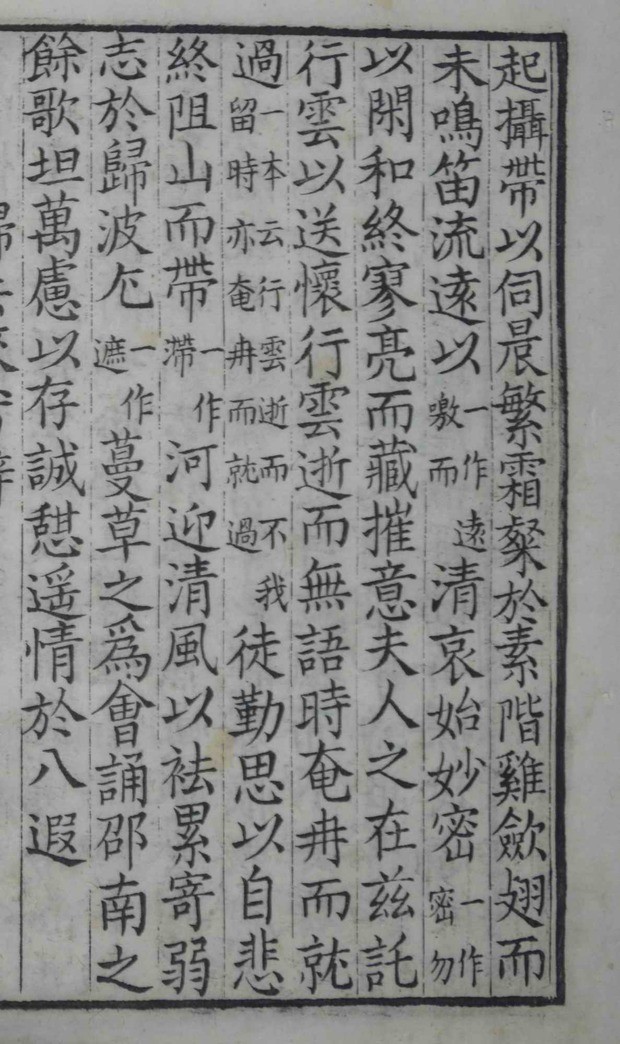 起攝帶以伺晨繁霜粲於素階雞歛翅而
未鳴笛流遠以一作遠噭而清哀始妙密一作密勿
以閑和終寥亮而藏摧意夫人之在兹託
行雲以送懷行雲逝而無語時奄冉而就
過一本云行雲逝而不我留時亦奄冉而就過徒勤思以自悲
終阻山而帶一作滯河迎清風以袪累寄弱
志於歸波尤一作遮蔓草之爲會誦邵南之
餘歌坦萬慮以存誠憇遥情於八遐